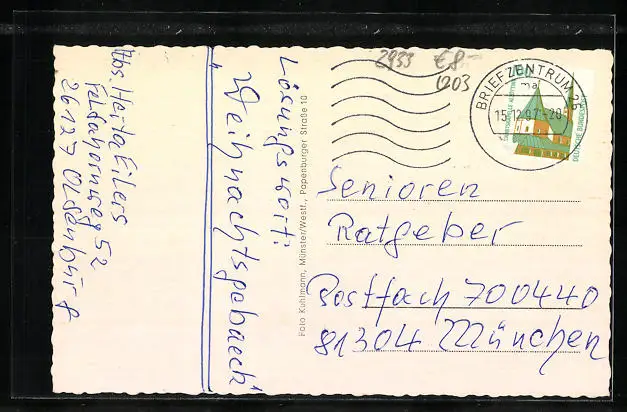 Abs. Herta Eilers
Feldahornweg 52
26127 Oldenburg
Lösungswort:
"Weihnachtsgebäck"
Foto Kuhlmann, Münster/Westf., Papenburger Straße 10
2953 €8,-
1203
BRIEFZENTRUM 26
ma
15.12.97-20
DEUTSCHE BUNDESPOST
Senioren
Ratgeber
Postfach 700440
81304 München